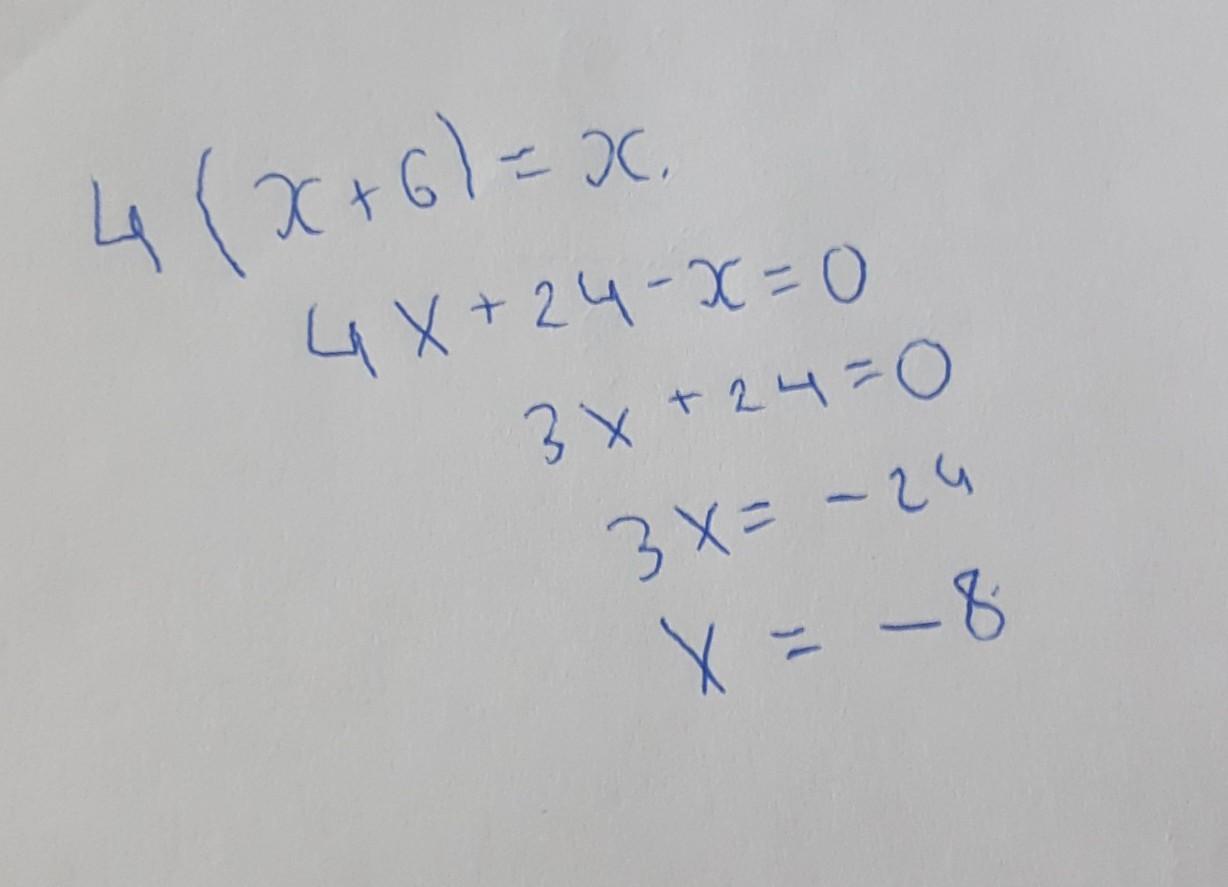 4(x+6)=x.
4x+24-x=0
3x+24=0
3x=-24
x=-8